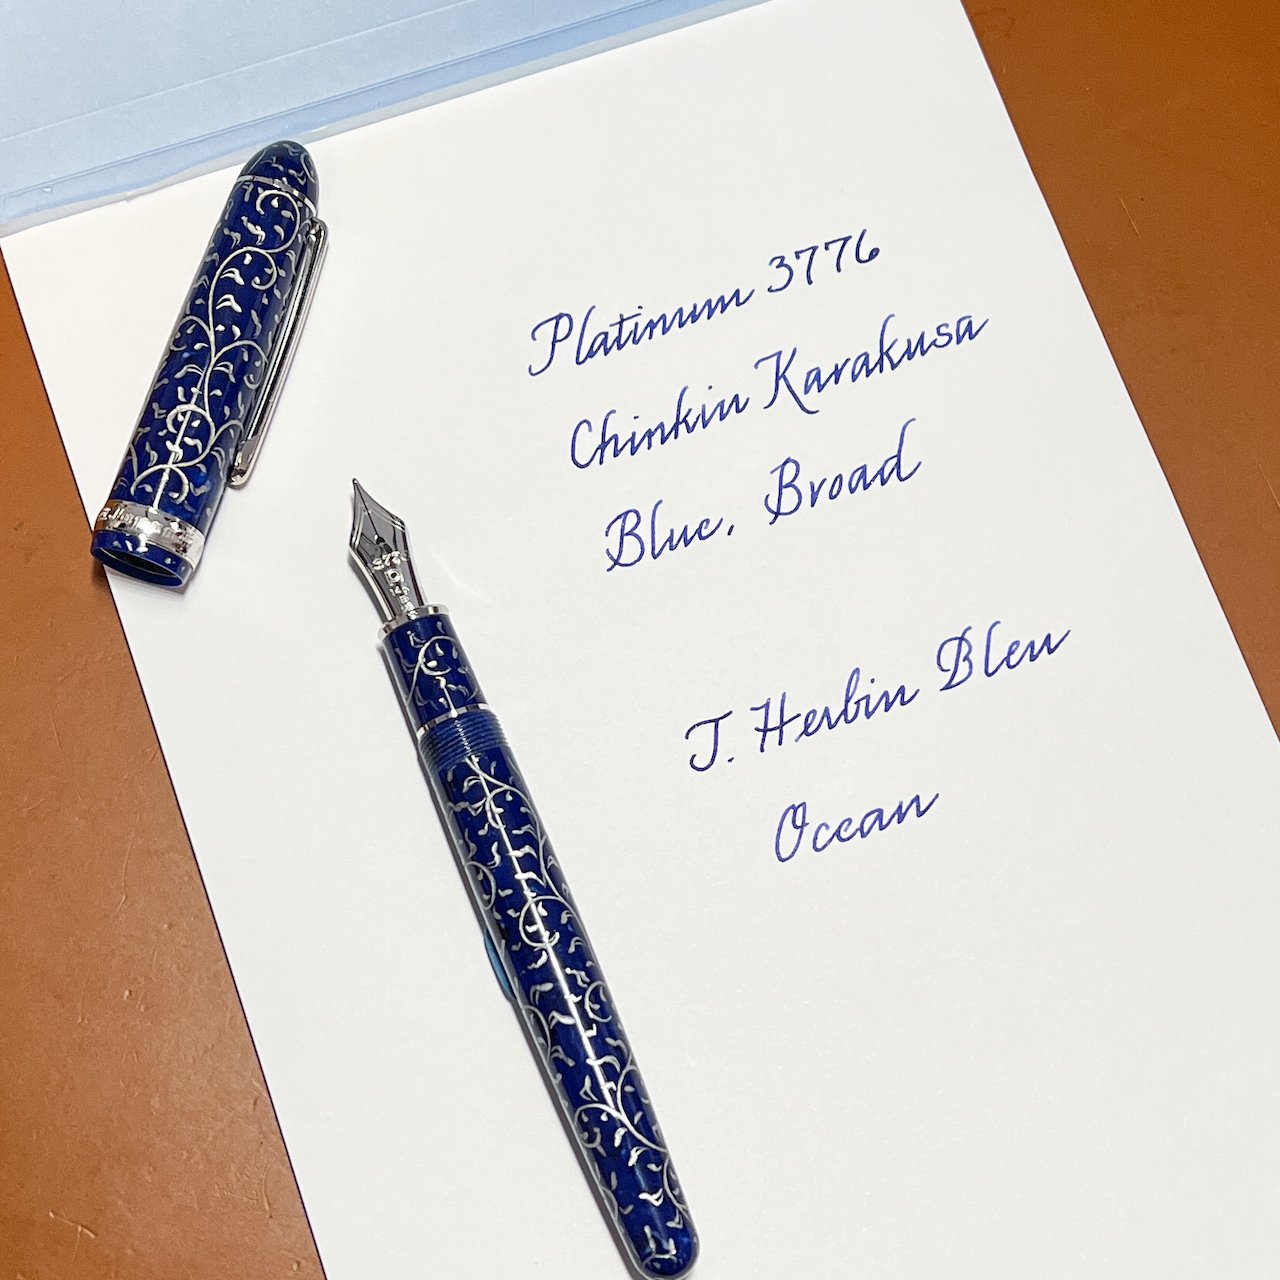 Platinum 3776
Chinkin Karakusa
Blue, Broad
J. Herbin Bleu
Ocean
3776